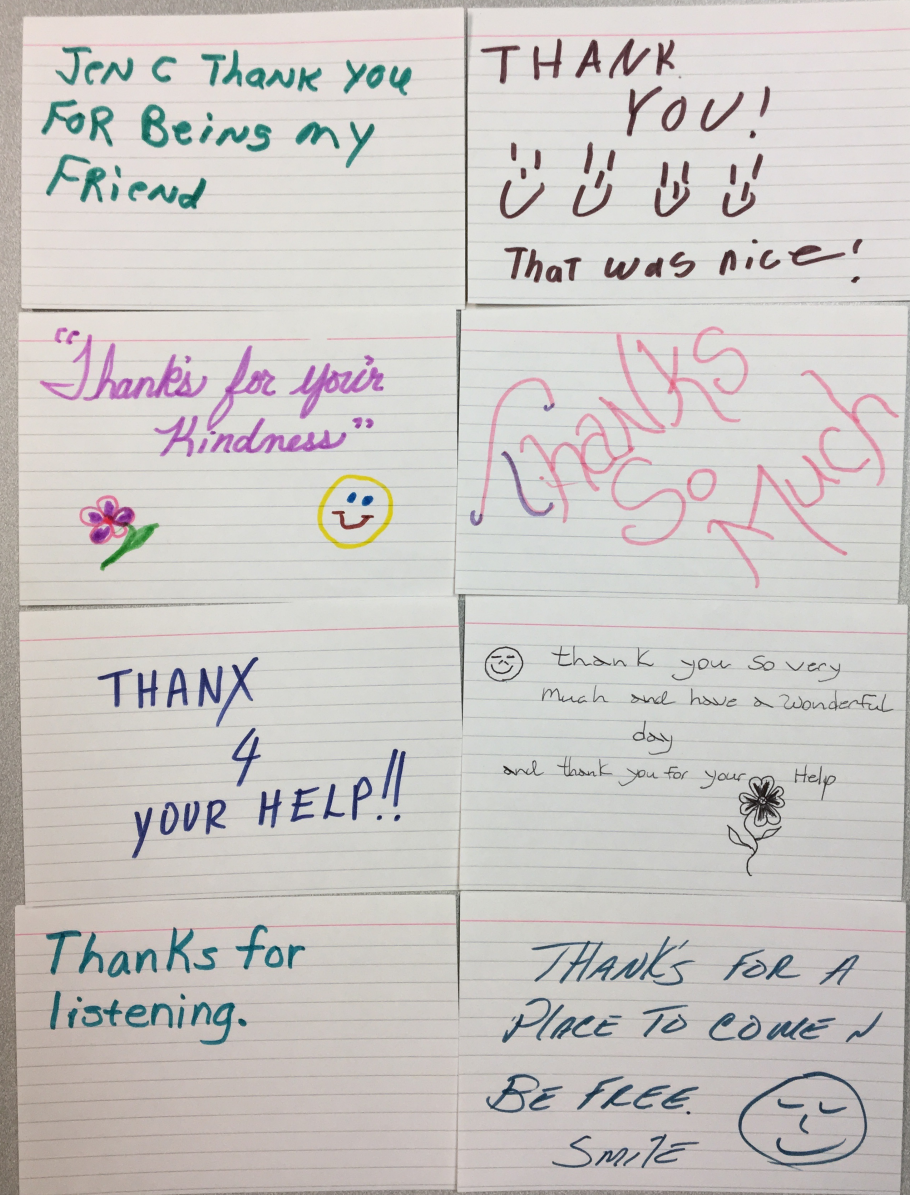 Jen C Thank you
For Being my
Friend
THANK
YOU!
That was nice!
"Thank's for you'r
Kindness"
Thanks
So
Much
THANX
4
YOUR HELP!!
thank you so very
much and have a wonderful
day
and thank you for your Help
Thanks for
listening.
THANK'S FOR A
PLACE TO COME N
BE FREE.
SMILE